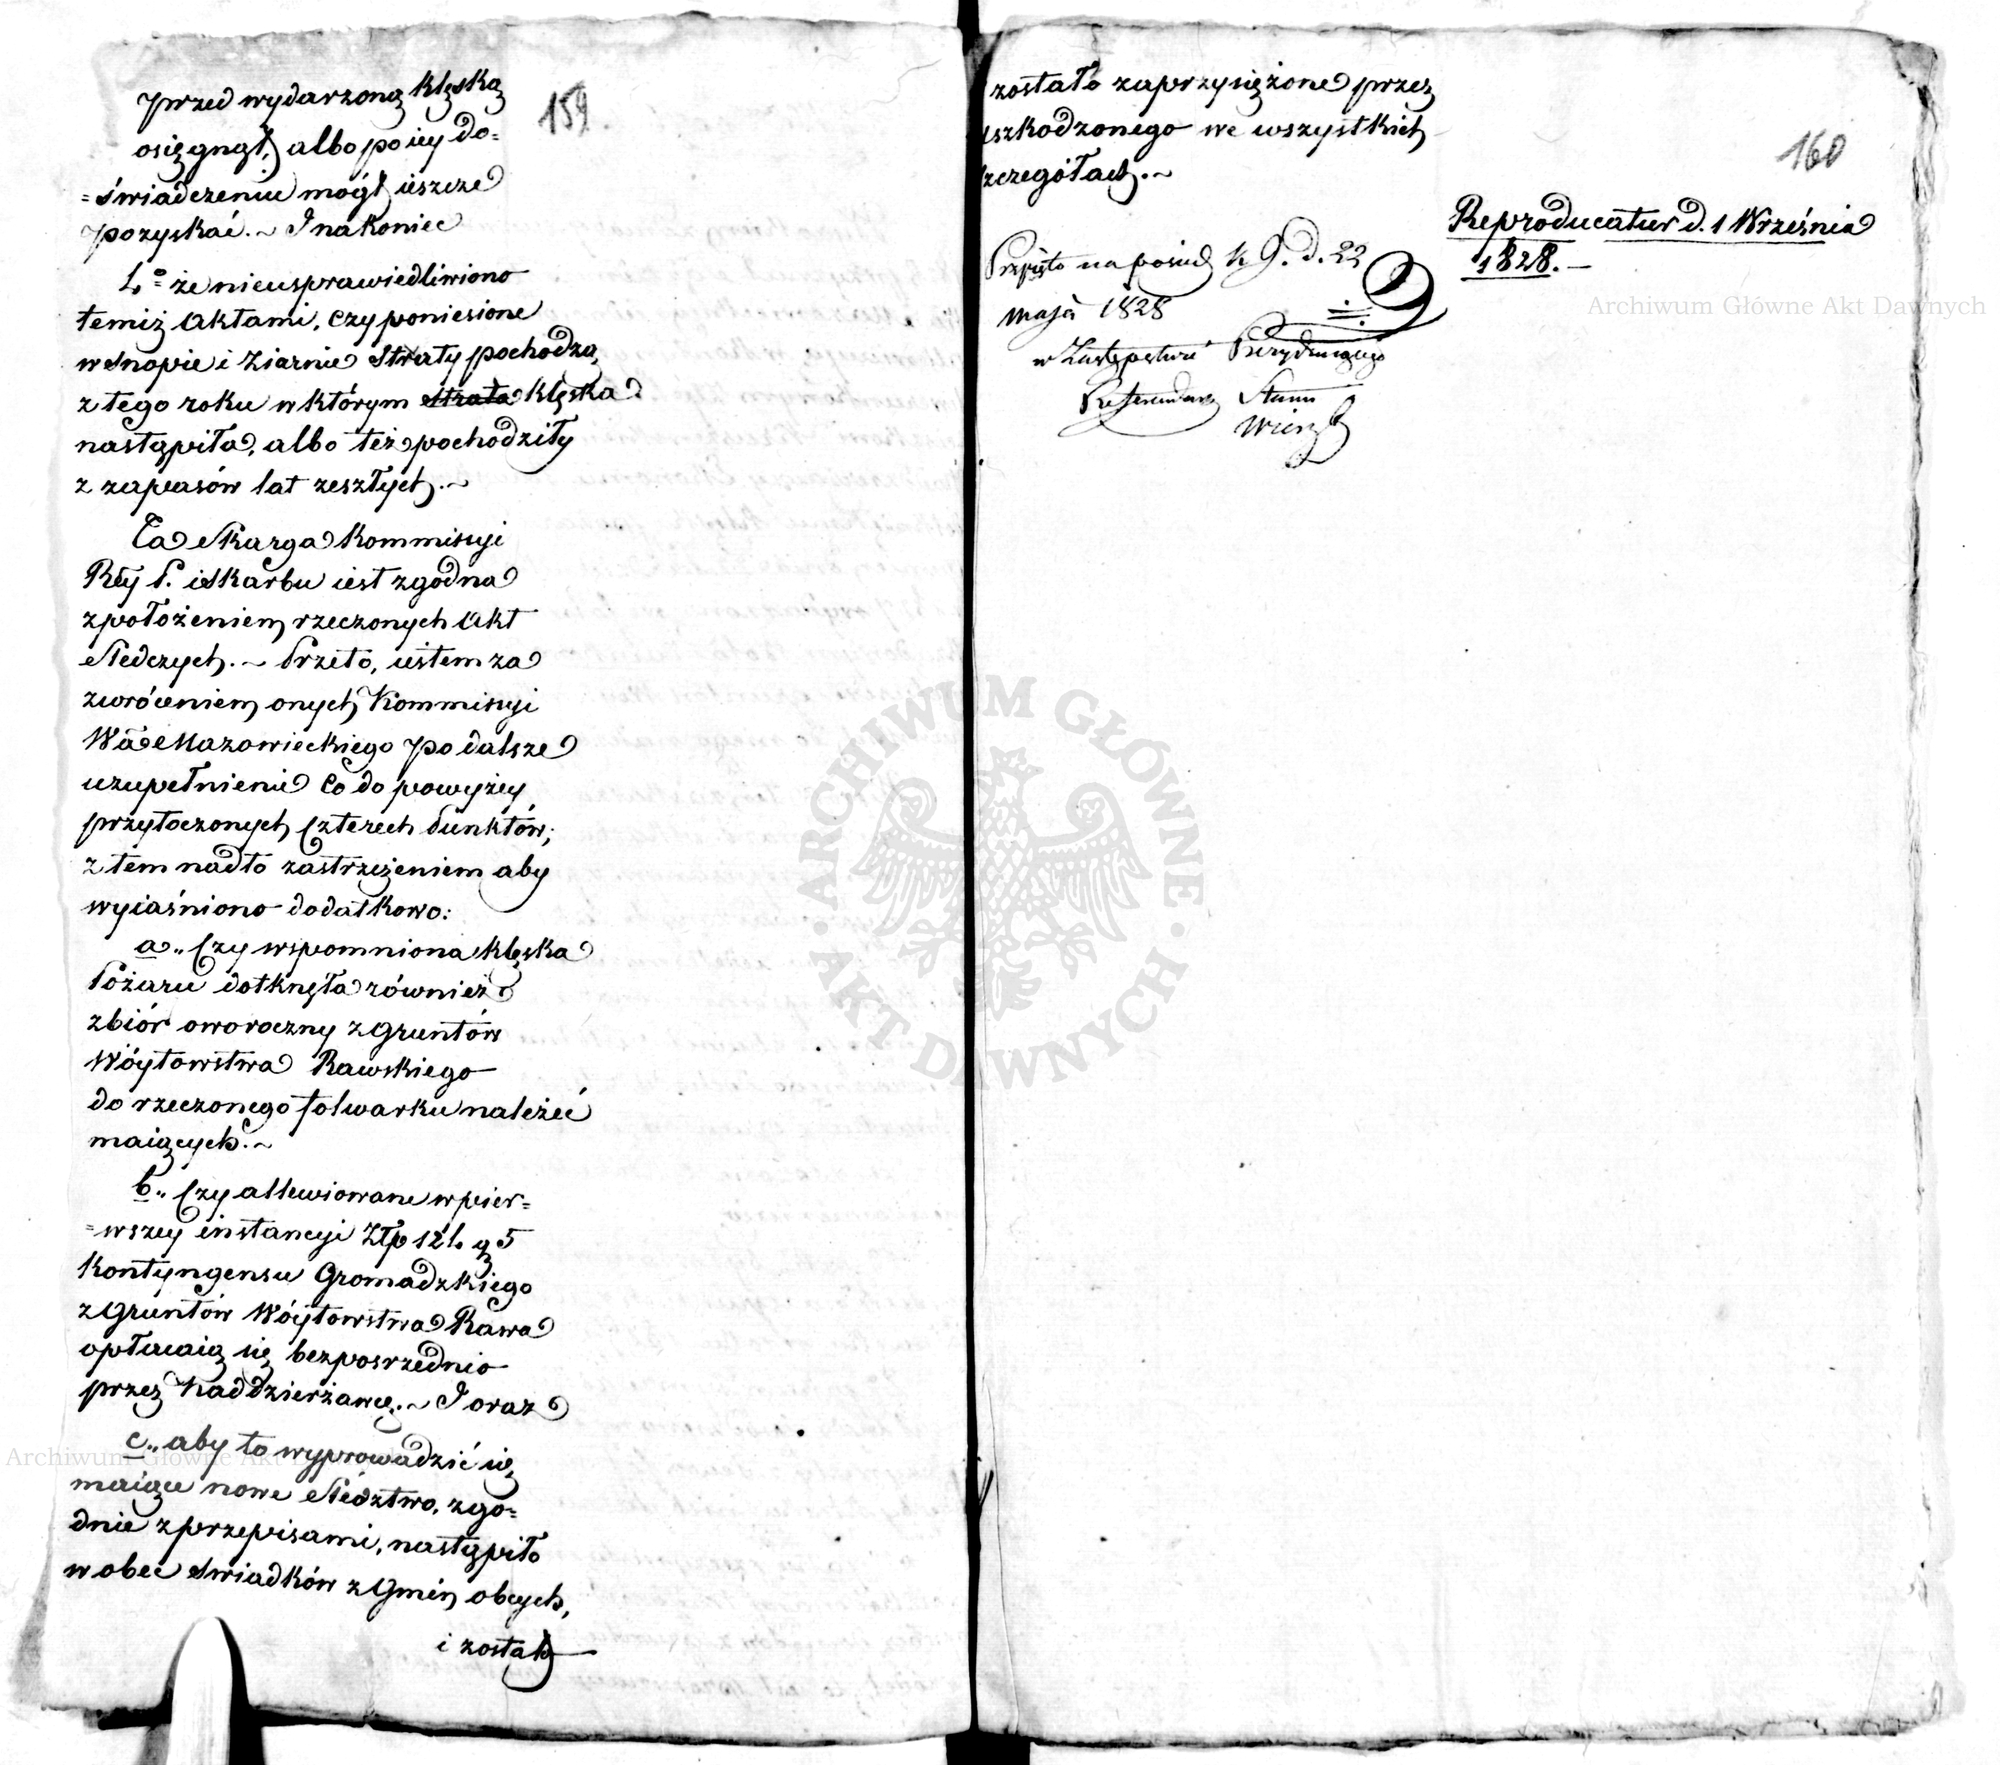 159
przed wydarzoną klęską
osięgnął, albo po iey do=
=świadczeniu mógł ieszcze
pozyskać.~ I nakoniec
4.° że nieusprawiedliwiono
temiż Aktami, czy poniesione
w Snopie i Ziarnie Straty pochodzą
z tego roku w którym Strata klęska
nastąpiła, albo też pochodziły
z zapasów lat zeszłych.~
Ta Skarga Kommissyi
Rłty P. i Skarbu iest zgodna
z położeniem rzeczonych Akt
Sledczych.~ Przeto, iestem za
zwróceniem onych Kommissyi
Wā Mazowieckiego po dalsze
uzupełnienie co do powyżey
przytoczonych czterech Punktów;
z tem nadto zastrzeżeniem aby
wyiaśniono dodatkowo:
a.. Czy wspomniona klęska
Pożaru dotknęła również
zbiór oworoczny z Gruntów
Wóytowstwa Rawskiego
do rzeczonego folwarku należeć
maiących.~
b.. Czy allewiowane w pier=
=wszey instancyi Złp 124 g 5
Kontyngensu Gromadzkiego
z Gruntów Wóytowstwa Rawa
opłacaią się bezpośrzednio
przez Naddzierżawcę.~ I oraz
c.. aby to wyprowadzić się
maiące nowe Sledztwo, zgo=
dnie z przepisami, nastąpiło
w obec Swiadków z Gmin obcych,
i zostało
160
zostało zaprzysiężone przez
uszkodzonego we wszystkich
szczegółach.~
Reproducatur d. 1 Września
1828.—
Przyięto na posied k 9. d. 22
maja 1828
w Zastępstwie Prezyduiącego
Referendarz Stanu
Archiwum Główne Akt Dawnych
ARCHIWUM GŁÓWNE · AKT DAWNYCH ·
Archiwum Główne Akt Dawnych